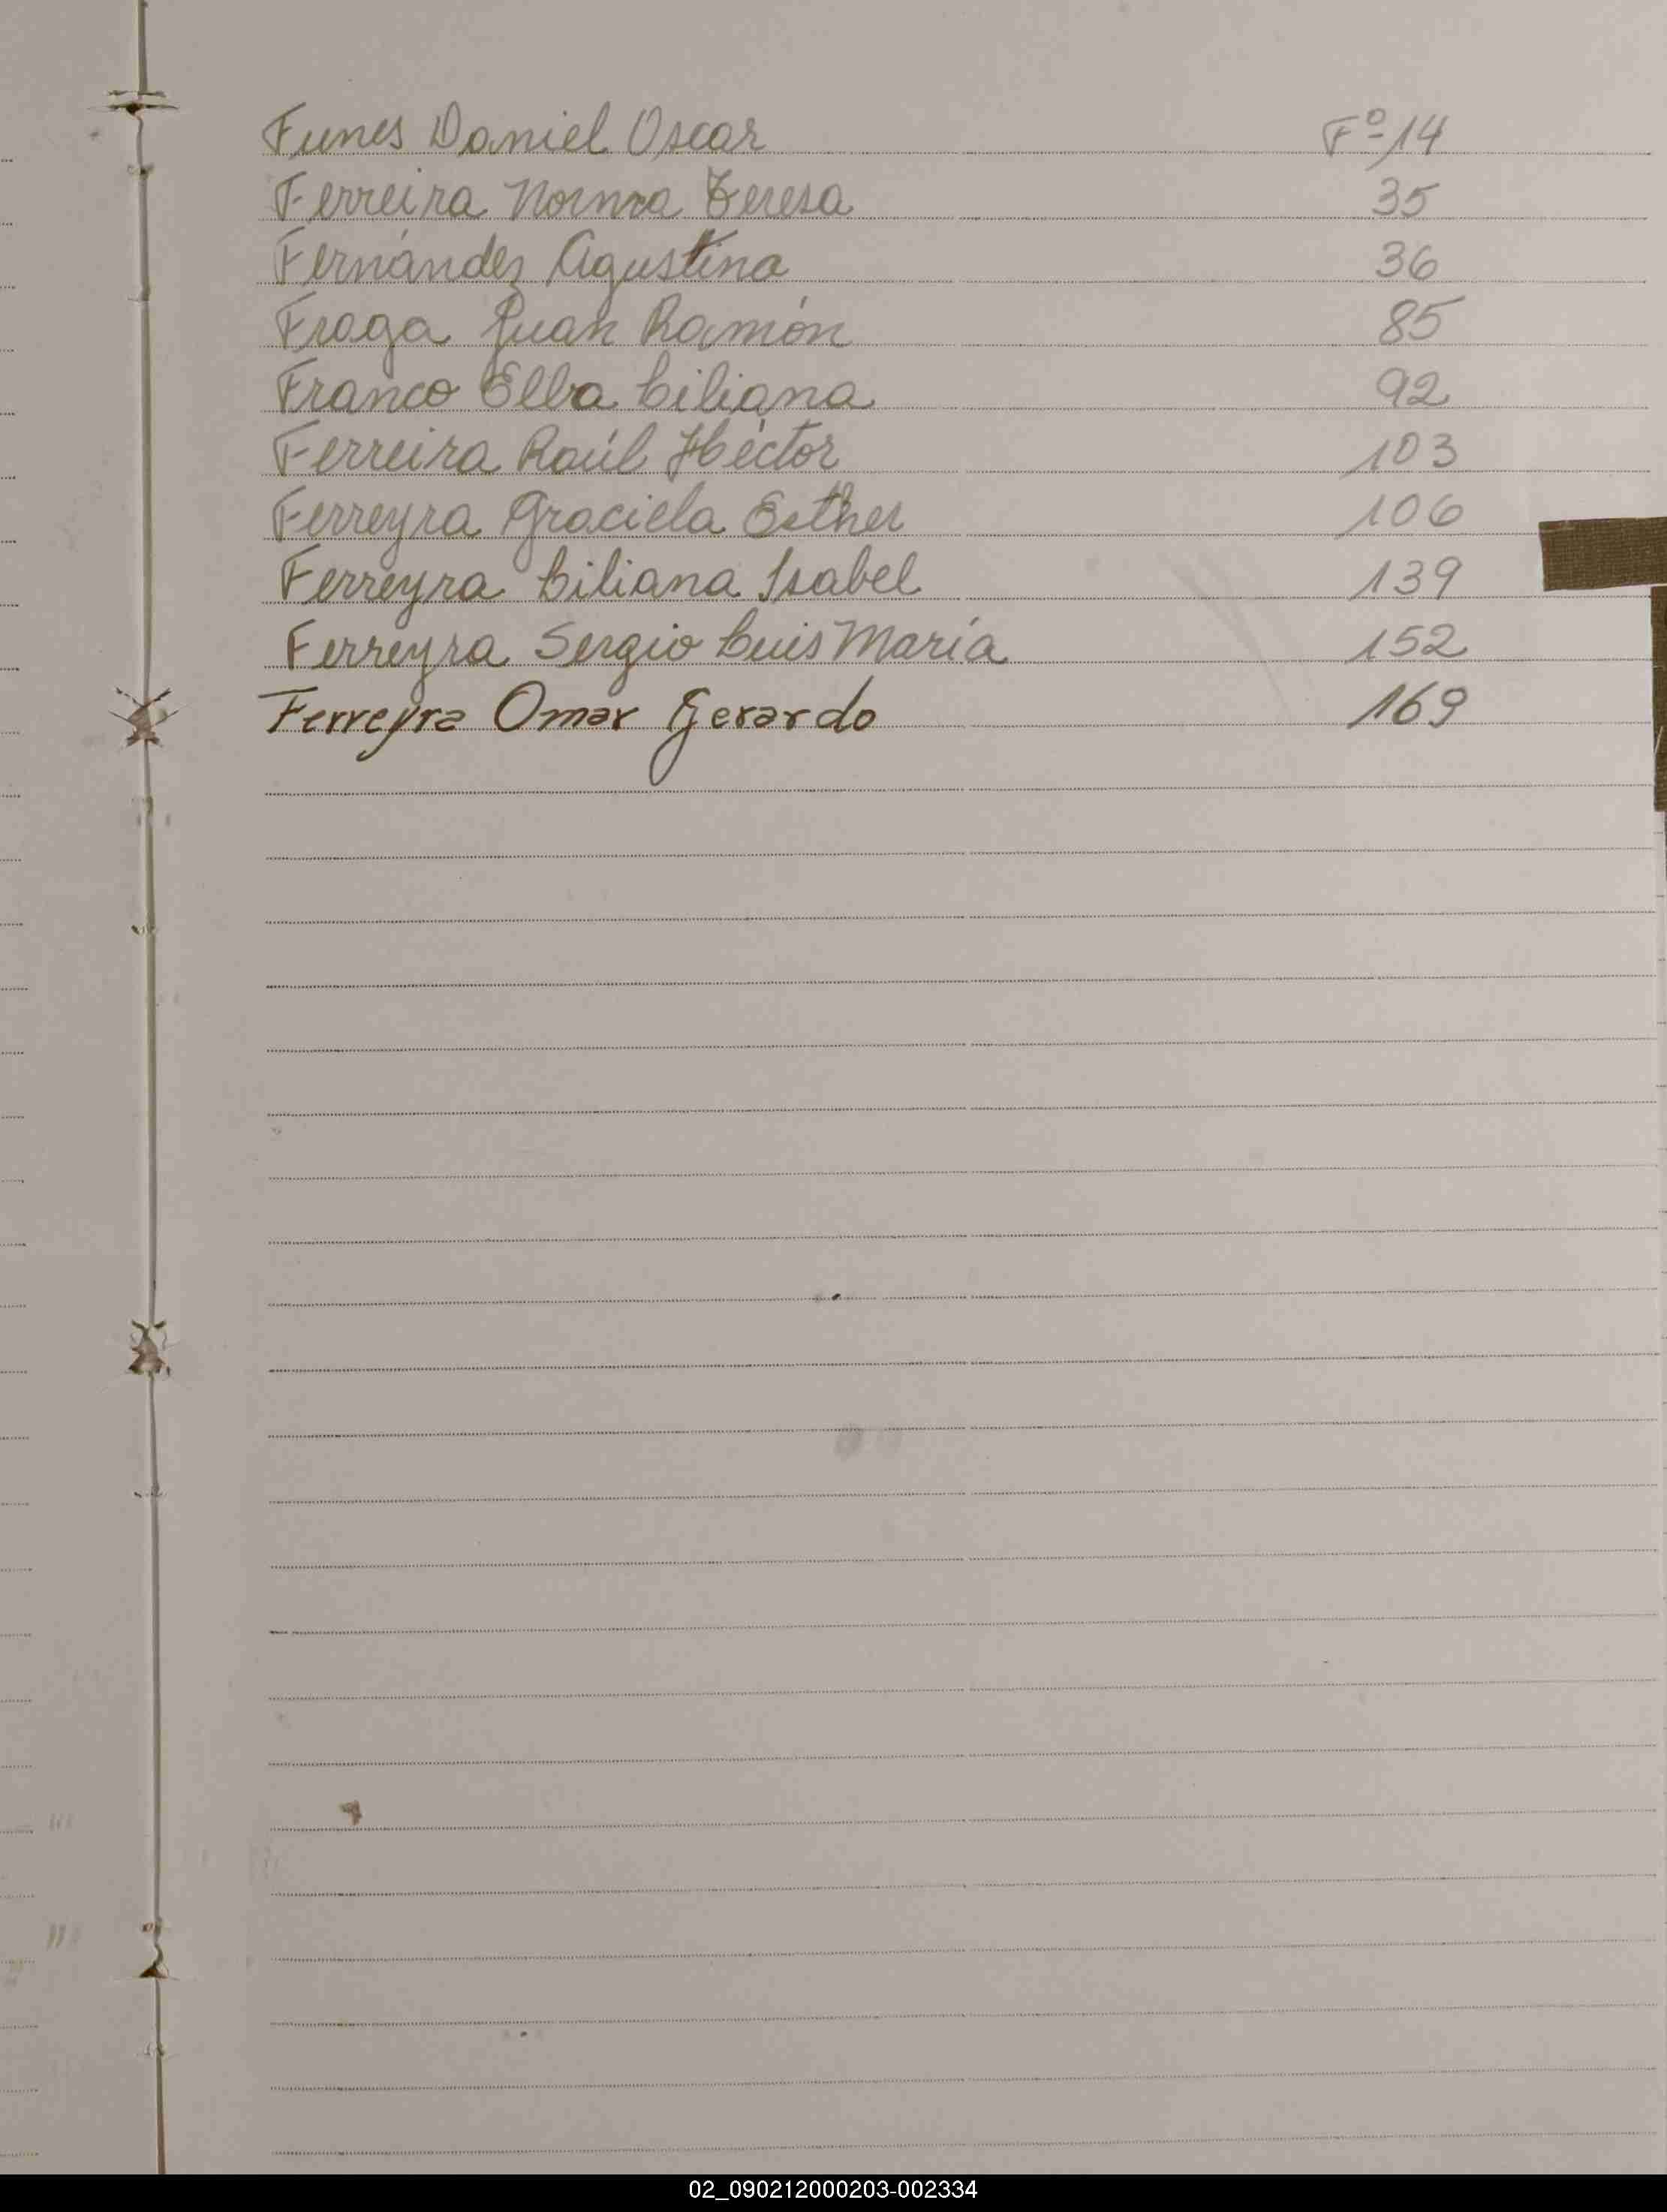 Funes Daniel Oscar Fº 14
Ferreira Norma Teresa 35
Fernández Agustina 36
Fraga Juan Ramón 85
Franco Elba Liliana 92
Ferreira Raúl Héctor 103
Ferreyra Graciela Esther 106
Ferreyra Liliana Isabel 139
Ferreyra Sergio Luis María 152
Ferreyra Omar Gerardo 169
02_090212000203-002334